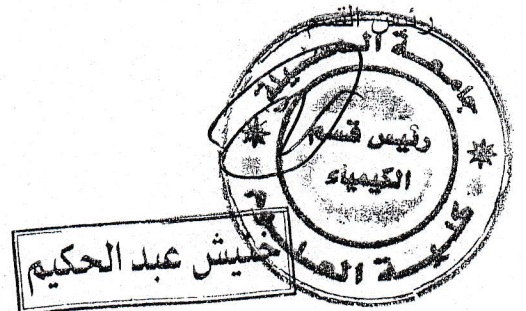 رئيس القسم
جامعة المسيلة
رئيس قسم
الكيمياء
كلية العلوم
خنيش عبد الحكيم